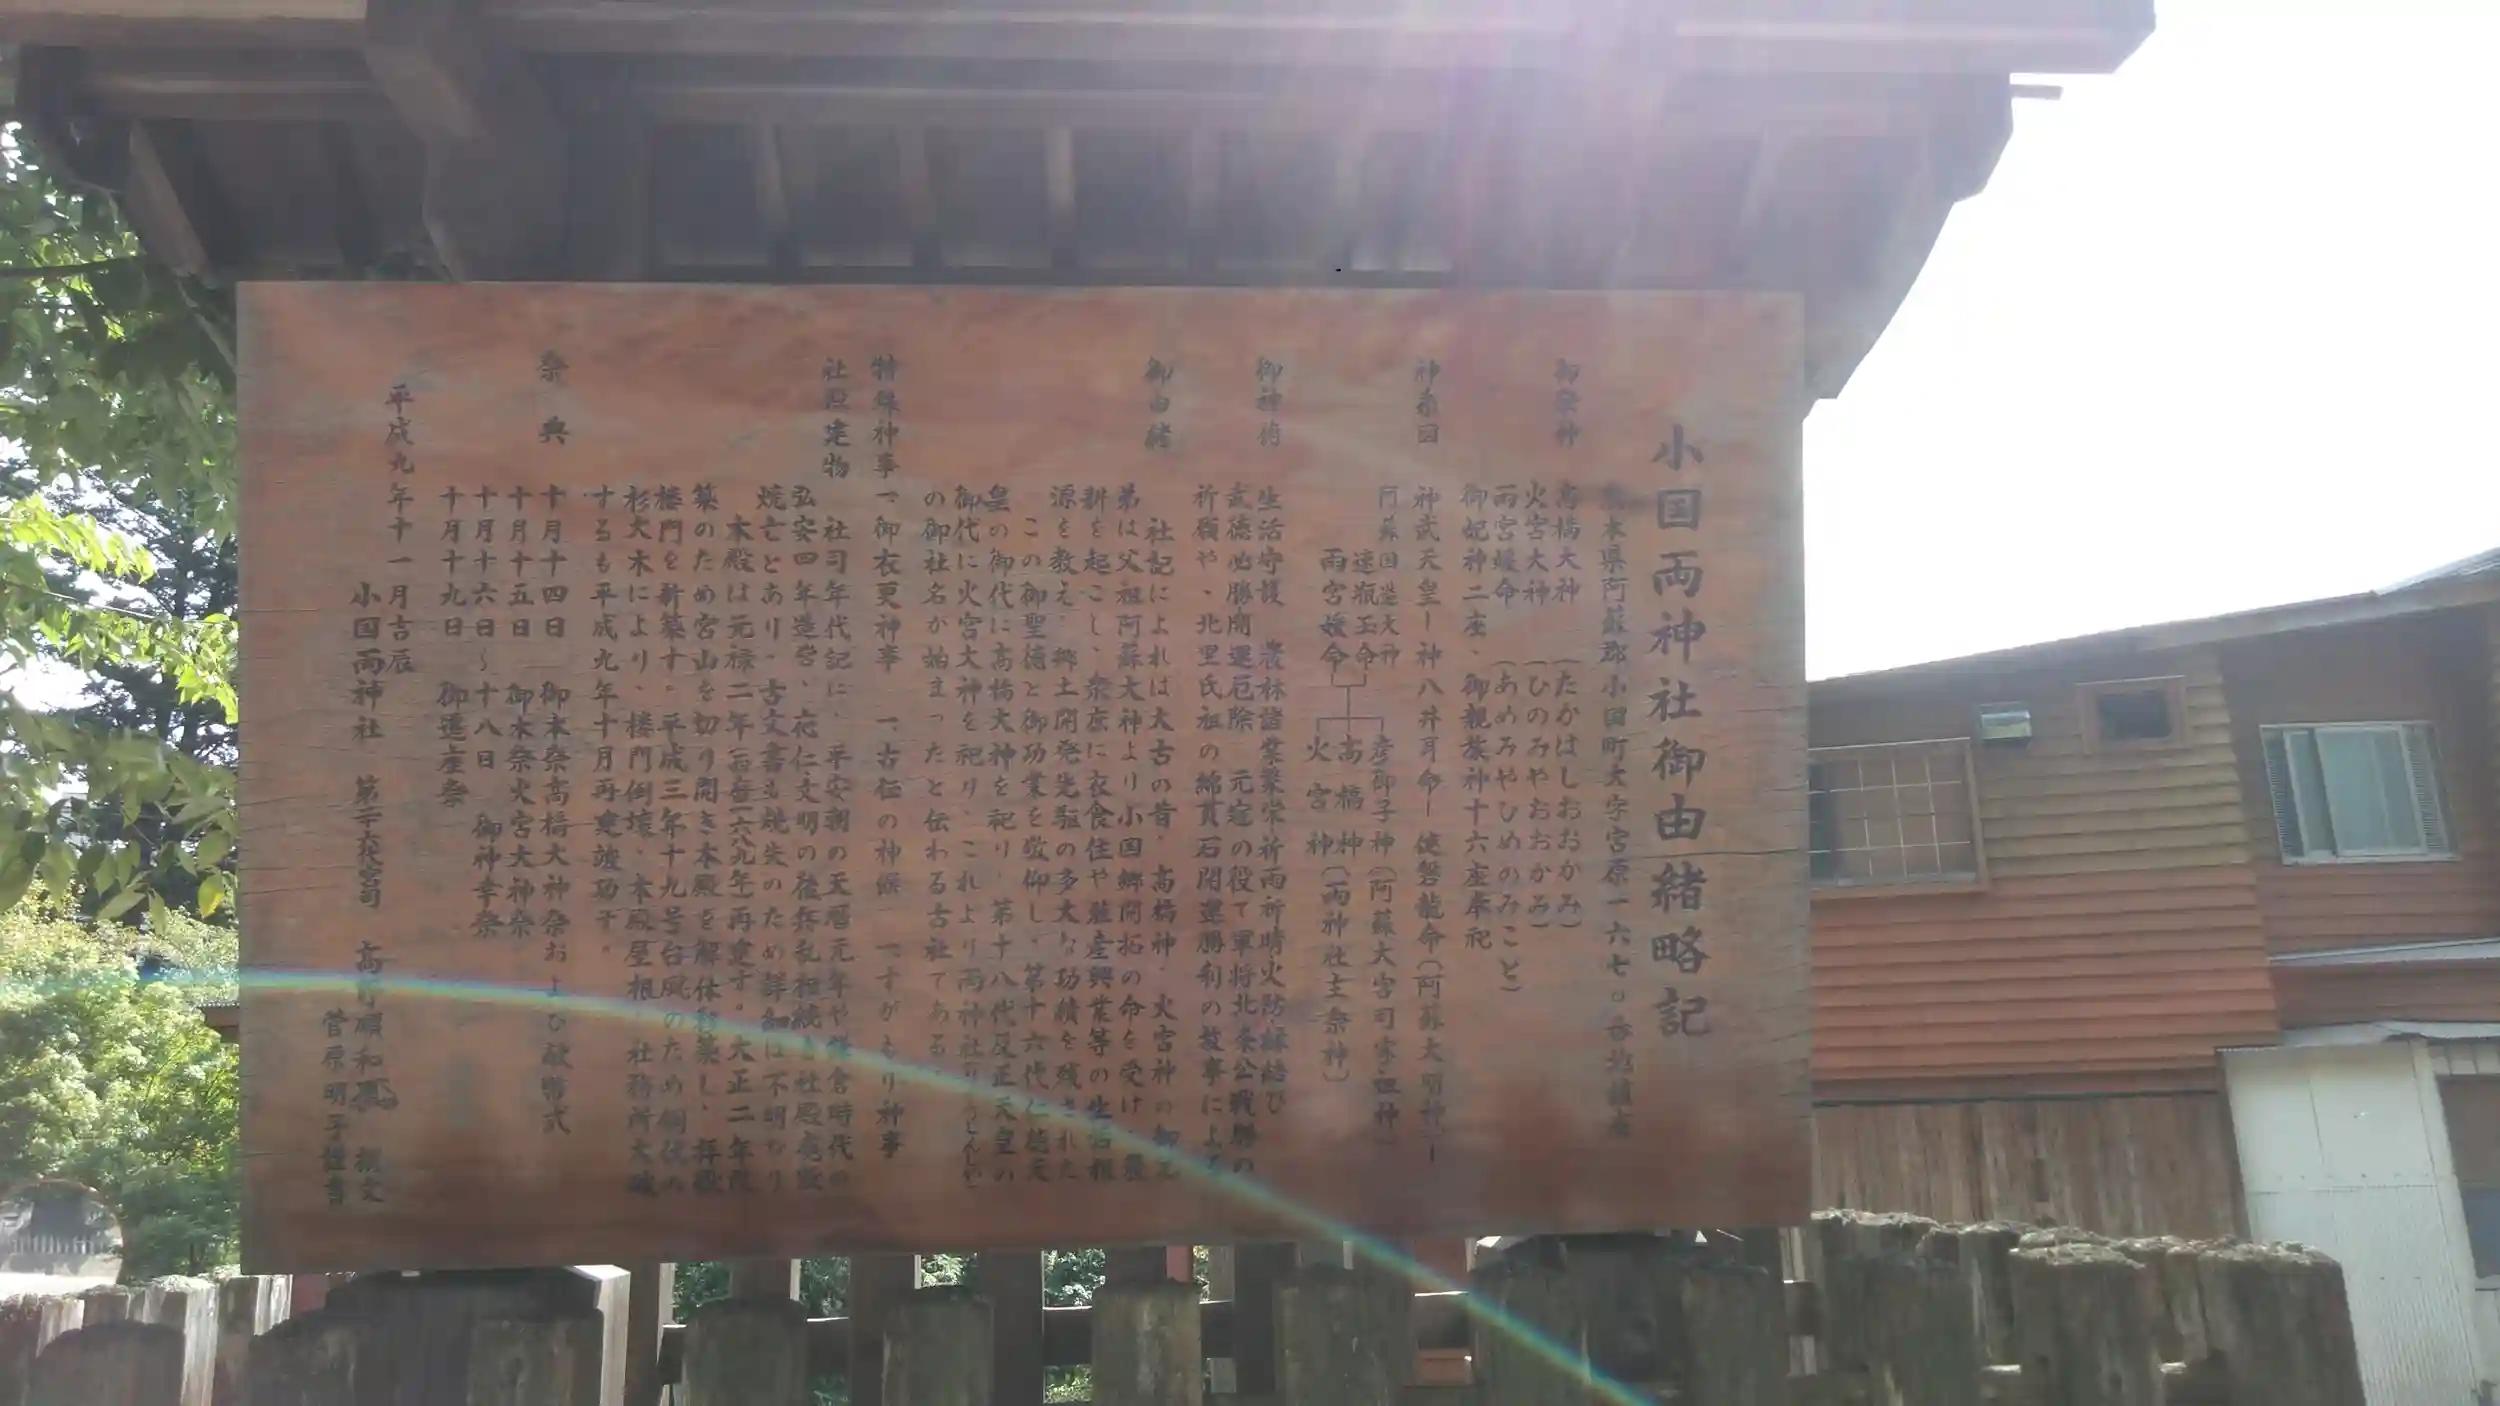 小国両神社御由緒略記
熊本県阿蘇郡小国町大字宮原一六七〇番地鎮座
御祭神 高橋大神 (たかはしおおかみ)
火宮大神 (ひのみやおおかみ)
雨宮媛命 (あめみやひめのみこと)
御妃神二座、御親族神十六座奉祀
神系図 神武天皇ー神八井耳命ー健磐龍命(阿蘇大明神)ー
阿蘇国造大神 速瓶玉命 雨宮媛命
彦御子神(阿蘇大宮司家祖神)
高橋神 火宮神(両神社主祭神)
御神徳 生活守護 農林諸業繁栄祈雨祈晴火防縁結び
武徳必勝開運厄除 元寇の役で軍将北条公戦勝の
祈願や、北里氏祖の綿貫石開運勝利の故事による
御由緒 社記によれば太古の昔、高橋神、火宮神の御兄
弟は父祖阿蘇大神より小国郷開拓の命を受け、農
耕を起こし、衆庶に衣食住や殖産興業等の生活根
源を教え、郷土開発先駆の多大な功績を残された
この御聖徳と御功業を敬仰し、第十六代仁徳天
皇の御代に高橋大神を祀り、第十八代反正天皇の
御代に火宮大神を祀り、これより両神社
の御社名が始まったと伝わる古社である。
特殊神事 一、御衣更神事 一、古伝の神 一、すがもり神事
社殿建物 社司年代記に、平安朝の天暦元年や鎌倉時代の
弘安四年造営、応仁文明の後兵乱相続き社殿
焼亡とあり、古文書も焼失のため詳細は不明なり
本殿は元禄二年(一六八九年)再建す。大正二年改
築のため宮山を切り開き本殿を解体移築し、拝殿
楼門を新築す。平成三年十九号台風のため
杉大木により、楼門倒壊、本殿屋根、社務所大破
するも平成九年十月再建竣功す。
祭典 十月十四日 御本祭高橋大神祭および献幣式
十月十五日 御本祭火宮大神祭
十月十六日~十八日 御神幸祭
十月十九日 御還座祭
平成九年十一月吉辰
小国両神社 宮司 高野 和 撰文
菅原明子 謹書